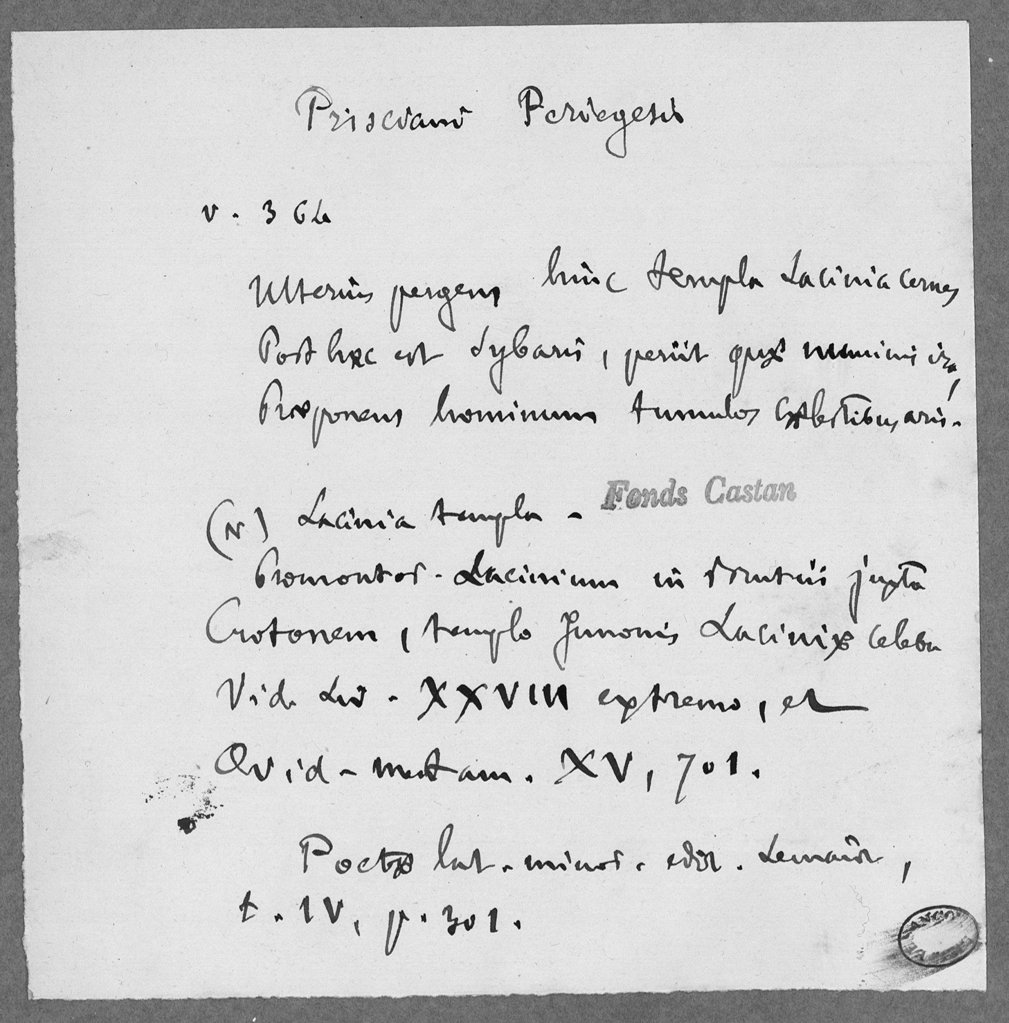 Prisciani Periegesis
v. 364
Ulterius pergens hinc templa Lacinia cernes
Post hæc est Sybaris, periit quæ numinis ira,
Præponens hominum tumulos cælestibus aris.
Fonds Castan
(N) Lacinia templa -
Promontor. Lacinium in Brutiis juxta
Crotonem, templo Junonis Laciniæ celebre
Vid. Liv. XXVIII extremo, et
Ovid. metam. XV, 701.
Poetæ lat. minor. edit. Lemaire,
t. IV, p. 301.